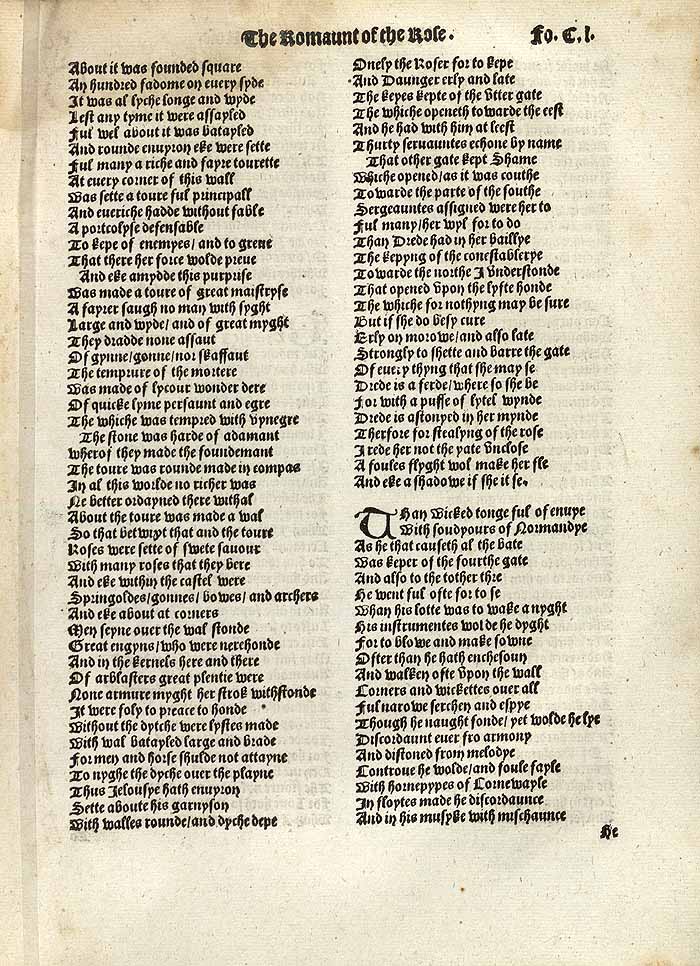 The Romaunt of the Rose. Fo. C. l.
About it was founded square
An hundred fadome on euery syde
It was al lyche longe and wyde
Lest any tyme it were assayled
Ful wel about it was batayled
And rounde enuyron eke were sette
Ful many a riche and fayre tourette
At euery corner of this wall
Was sette a toure ful principall
And eueriche hadde without fable
A portcolyse defensable
To kepe of enemyes/ and to greue
That there her force wolde preue
And eke amydde this purprise
Was made a toure of great maistryse
A fayrer saugh no man with syght
Large and wyde/ and of great myght
They dradde none assaut
Of gynne/gonne/nor skaffaut
The temprure of the mortere
Was made of lycour wonder dere
Of quicke lyme persaunt and egre
The whiche was tempred with vynegre
The stone was harde of adamant
wherof they made the foundemant
The toure was rounde made in compas
In al this worlde no richer was
Ne better ordayned there withal
About the toure was made a wal
So that betwixt that and the toure
Roses were sette of swete sauour
With many roses that they bere
And eke within the castel were
Springoldes/gonnes/ bowes/ and archers
And eke about at corners
Men seyne ouer the wal stonde
Great engyns/who were nerehonde
And in the kernels here and there
Of arblasters great plentie were
None armure myght her strok withstonde
It were foly to preace to honde
Without the dytche were lystes made
With wal batayled large and brade
For men and horse shulde not attayne
To nyghe the dyche ouer the playne
Thus Jelousye hath enuyron
Sette aboute his garnyson
With walles rounde/and dyche depe
Onely the Roser for to kepe
And Daunger erly and late
The keyes kepte of the vtter gate
The whiche openeth towarde the eest
And he had with him at leest
Thurty seruauntes echone by name
That other gate kept Shame
Whiche opened/as it was couthe
Towarde the parte of the southe
Sergeauntes assigned were her to
Ful many/her wyl for to do
Than Drede had in her baillye
The kepyng of the conestablerye
Towarde the northe I vnderstonde
That opened vpon the lyfte honde
The whiche for nothyng may be sure
But if she do besy cure
Erly on morowe/and also late
Strongly to shette and barre the gate
Of euery thyng that she may se
Drede is a ferde/where so she be
For with a puffe of lytel wynde
Drede is astonyed in her mynde
Therfore for stealyng of the rose
I rede her not the yate vnclose
A foules flyght wol make her fle
And eke a shadowe if she it se.
THan Wicked tonge ful of enuye
With soudyours of Normandye
As he that causeth al the bate
Was keper of the fourthe gate
And also to the tother thre
He went ful ofte for to se
Whan his lotte was to wake a nyght
His instrumentes wolde he dyght
For to blowe and make sowne
Ofter than he hath enchesoun
And walken ofte vpon the wall
Corners and wickettes ouer all
Ful narowe serchen and espye
Though he naught fonde/ yet wolde he lye
Discordaunt euer fro armony
And distoned from melodye
Controue he wolde/and foule fayle
With hornepypes of Cornewayle
In floytes made he discordaunce
And in his musyke with mischaunce
He